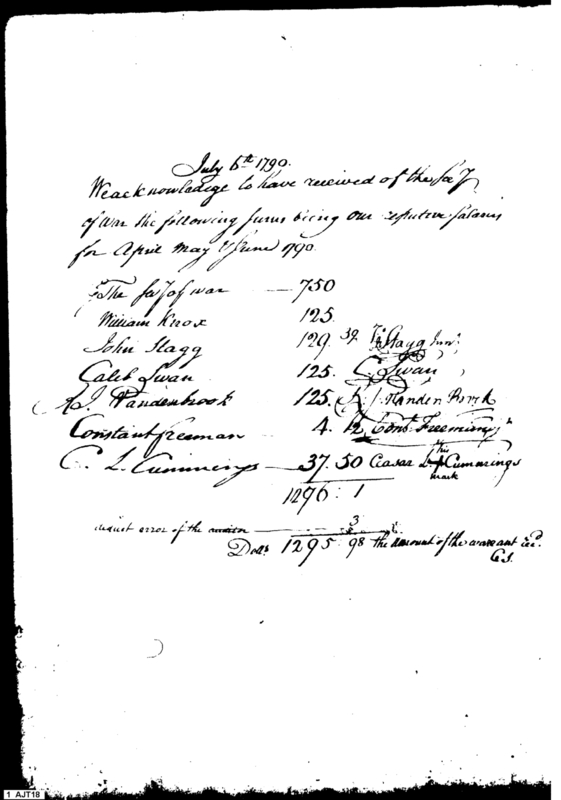 July 6th 1790.
We acknowladge to have received of the Secy
of War the following sums being our respective salaries
for April May & June 1790.
The Secy of War 750
William Knox 125.
John Stagg 129. 39. Jn Stagg Junr.
Caleb Swan 125. C. Swan
A. J. Vandenbrook 125. A. J. Vanden Broek
Constant freeman 4. 12 Const. Freeman
C. L. Cummings 37. 50 Ceasar L his + Cummings
mark
1296 : 1
deduct error of the 3
Dolls 1295 98 the amount of the warrant recd.
C.S.
1 AJT18